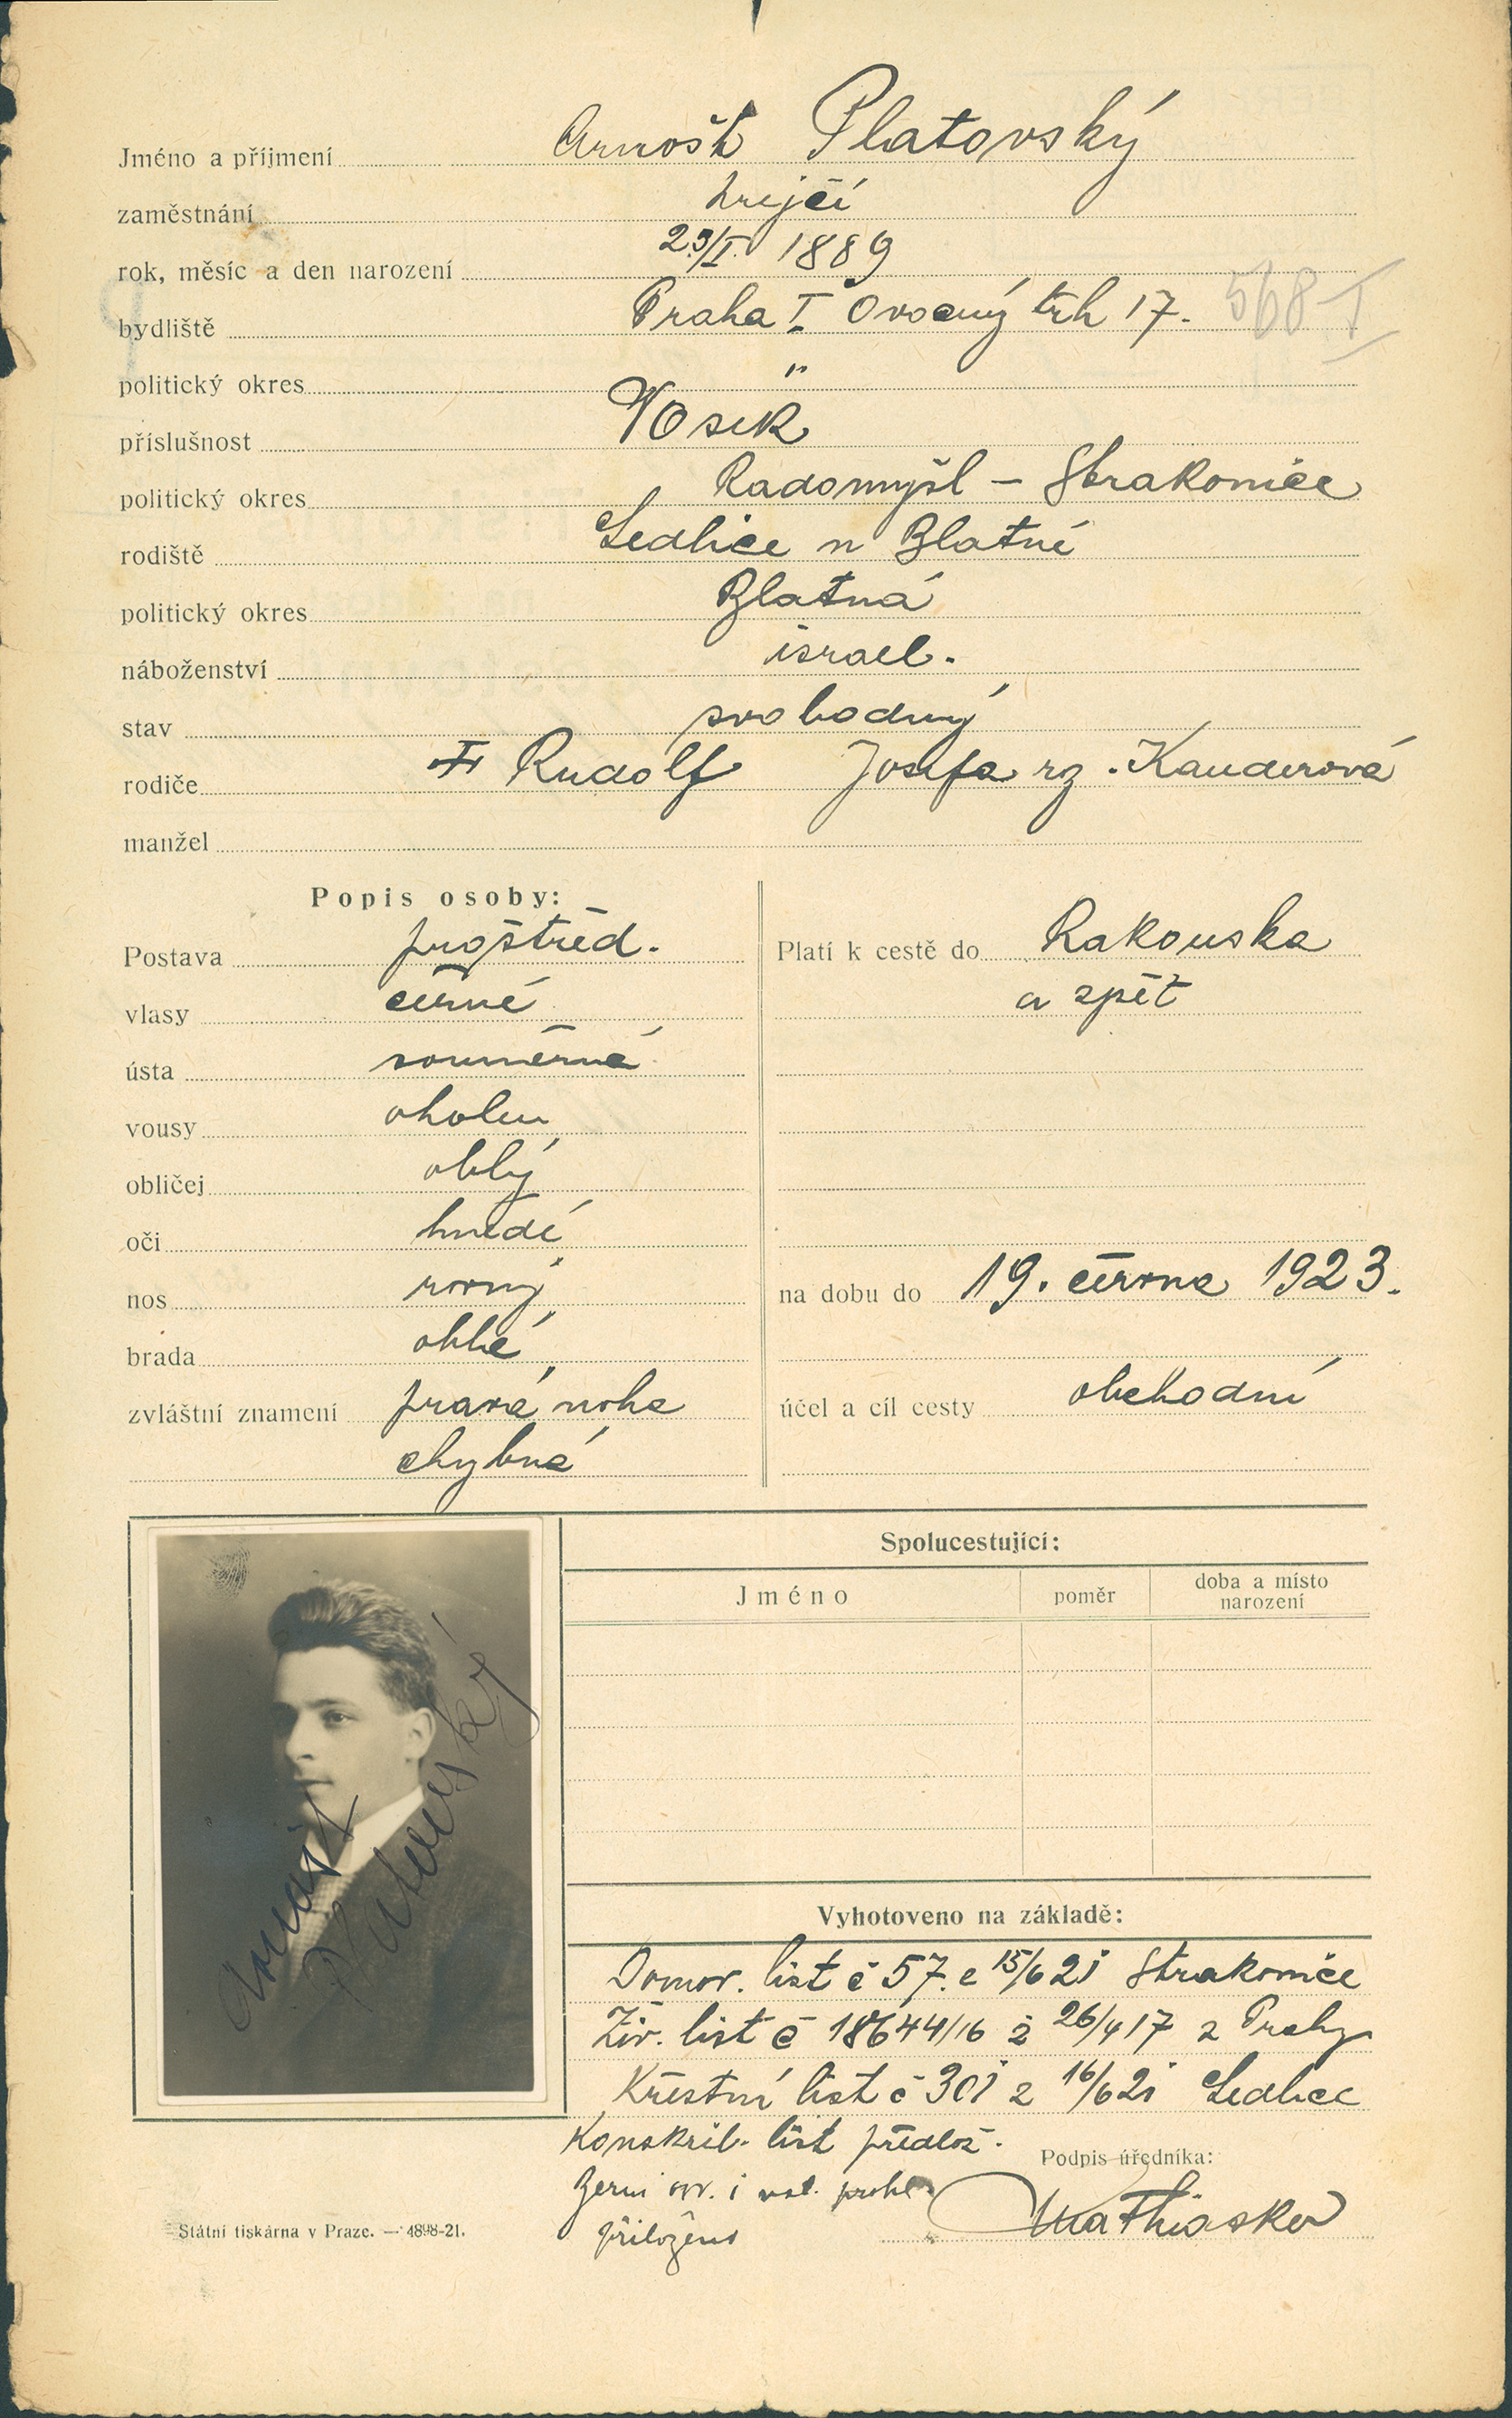 Jméno a příjmení Arnošt Platovský
zaměstnání krejčí
rok, měsíc a den narození 23/I. 1889
bydliště Praha I. Ovocný trh 17. 568-I
politický okres "
příslušnost Vosek
politický okres Radomyšl - Strakonice
rodiště Sedlice u Blatné
politický okres Blatná
náboženství israel.
stav svobodný
rodiče Rudolf Josefa rz. Kauderová
manžel
Popis osoby:
Postava prostřed.
vlasy černé
ústa souměrná
vousy oholen
obličej oblý
oči hnědé
nos rovný
brada oblá
zvláštní znamení pravá noha
chybná
Platí k cestě do Rakouska
a zpět
na dobu do 19. června 1923.
účel a cíl cesty obchodní
Arnošt
Platovský
Spolucestující:
Jméno poměr doba a místo
narození
Vyhotoveno na základě:
Domov. list č 57. z 15/6 21 Strakonice
Živ. list č 18644/16 z 26/4 17 z Prahy
Křestní list č 301 z 16/6 21 Sedlice
Konskrib. list předlož.
Podpis úředníka:
přiloženo
Státní tiskárna v Praze. — 4898-21.